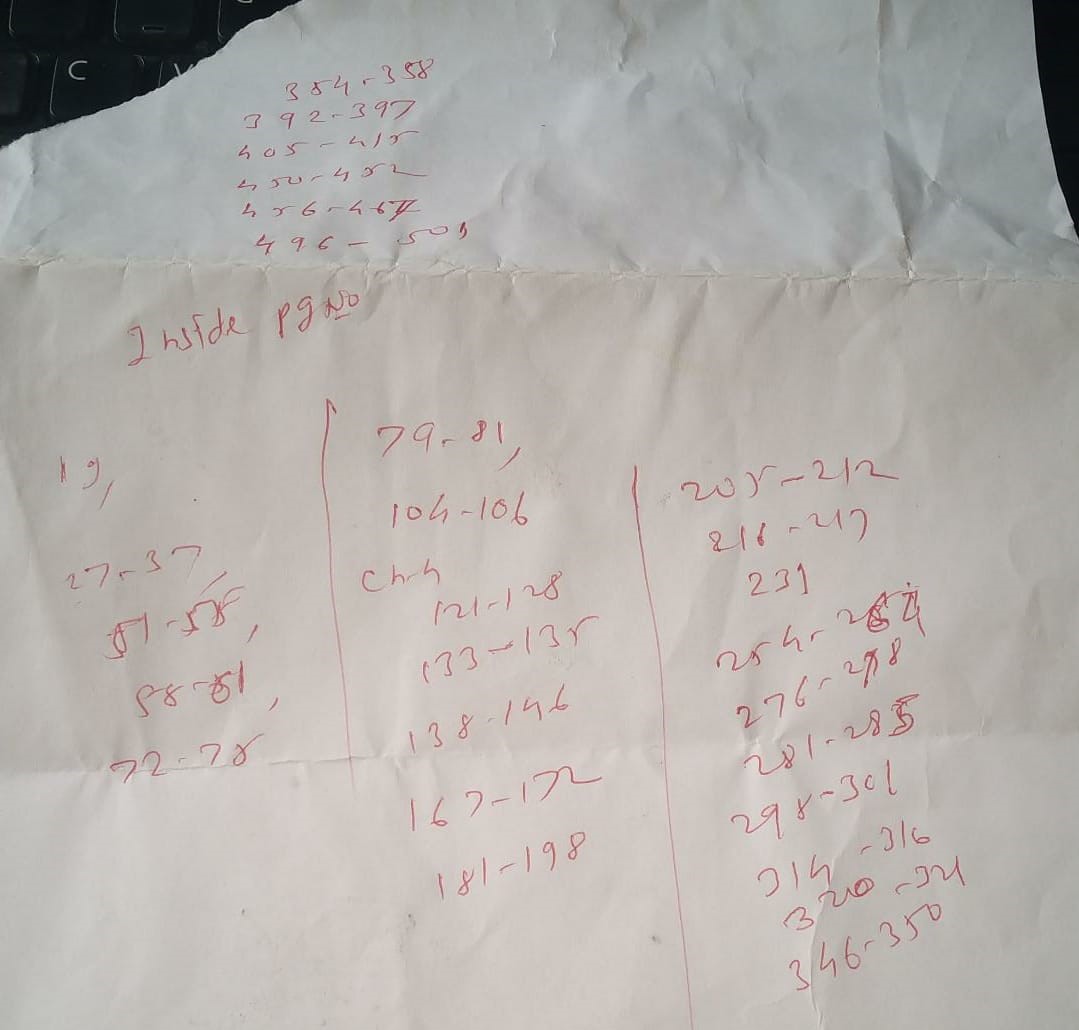 C
354-358
392-397
405-415
450-452
456-467
496-501
Inside pg No
19,
27-37,
51-55,
58-61,
72-78
79-81,
104-106
Ch-4
121-128
133-135
138-146
167-172
181-198
205-212
216-217
231
254-264
276-278
281-285
298-301
314-316
320-321
346-350